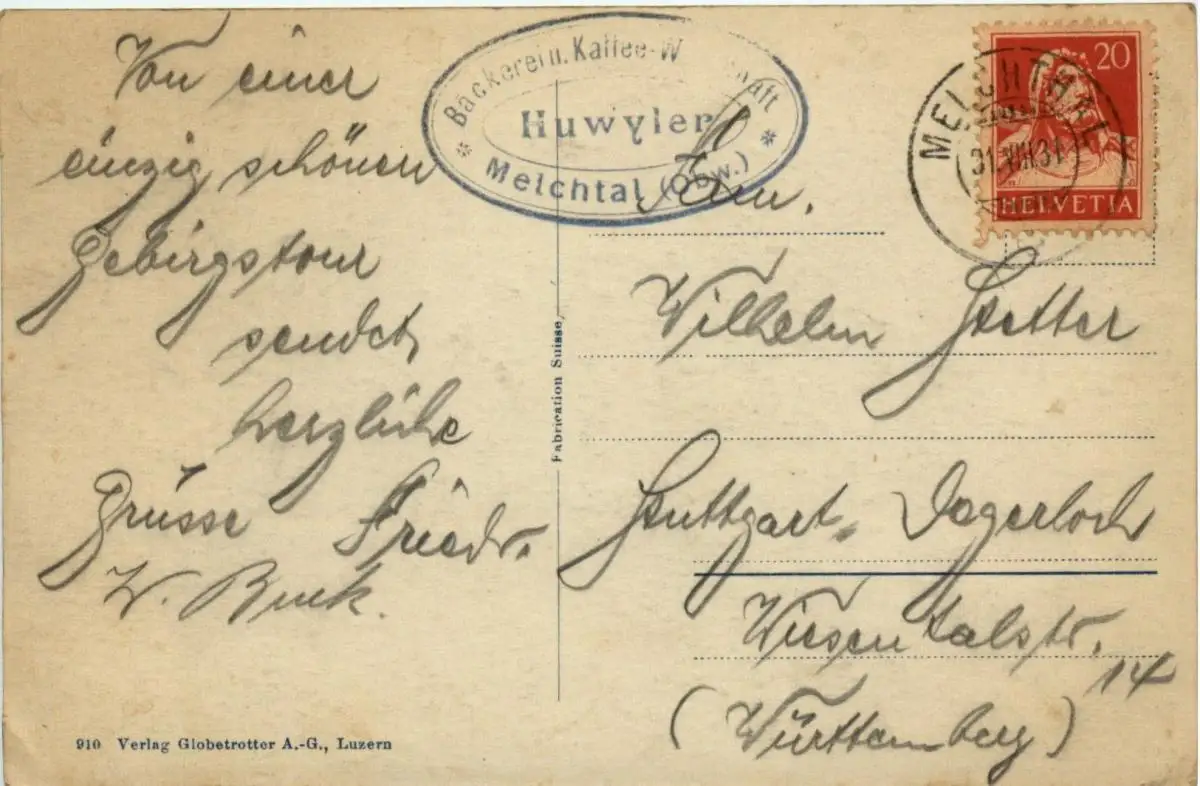 Von einer
einzig schönen
Gebirgstour
sendet
herzliche
Grüsse Friedr.
W. Buck.
910 Verlag Globetrotter A.-G., Luzern
Bäckerei u. Kaffee-W
haft
Huwyler
Melchtal (Obw.)
Fabrication Suisse,
MELCHTHAL
31.VIII.31
20
HELVETIA
Wilhelm Stetter
Stuttgart-Degerloch
Wiesentalstr.
14
(Württemberg)